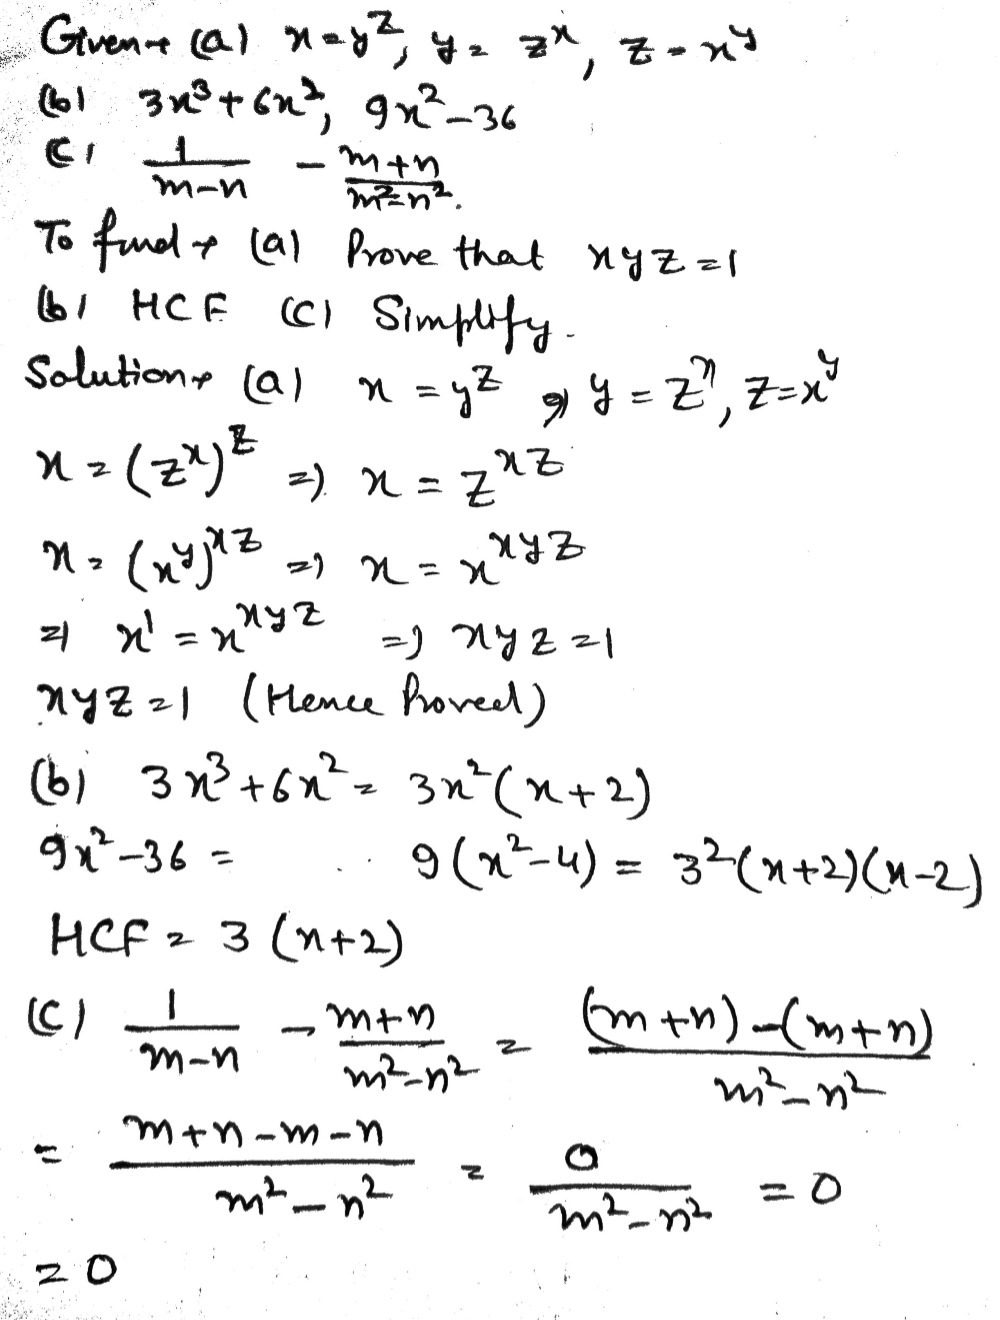 Given→ (a) x=y^z, y = z^x, z = x^y
(b) 3x³+6x², 9x²-36
(C) 1/(m-n) - (m+n)/(m²-n²).
To find→ (a) Prove that xyz=1
(b) HCF (C) Simplify.
Solution→ (a) x = y^z, y = z^x, z=x^y
x = (z^x)^z => x = z^xz
x = (x^y)^xz => x = x^xyz
=> x^1 = x^xyz => xyz=1
xyz=1 (Hence Proved)
(b) 3x³+6x² = 3x²(x+2)
9x²-36 = 9(x²-4) = 3²(x+2)(x-2)
HCF = 3(x+2)
(C) 1/(m-n) - (m+n)/(m²-n²) = ((m+n)-(m+n))/(m²-n²)
= (m+n-m-n)/(m²-n²) = 0/(m²-n²) = 0
= 0